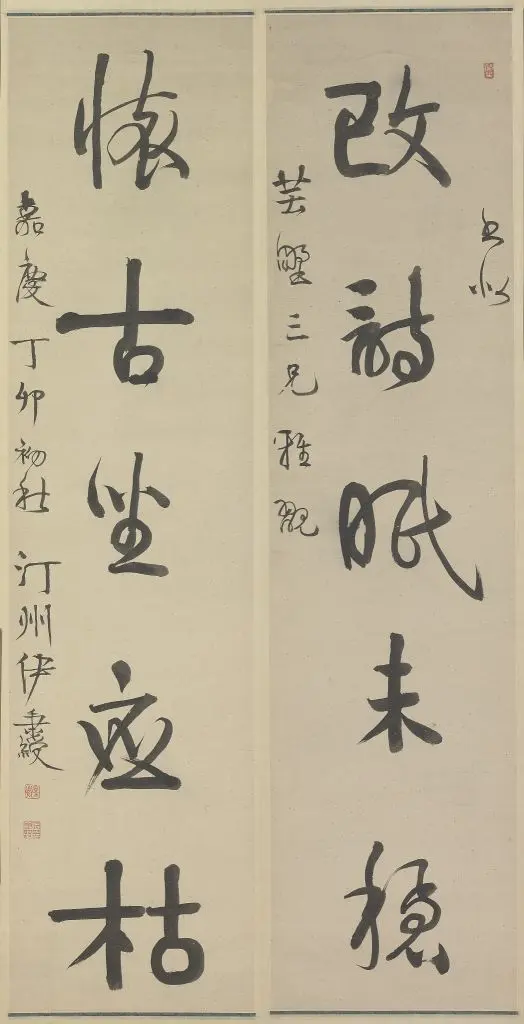 書似
改詩眠未穩
芸墅三兄雅觀
懷古坐應枯
嘉慶丁卯初秋汀州伊秉綬